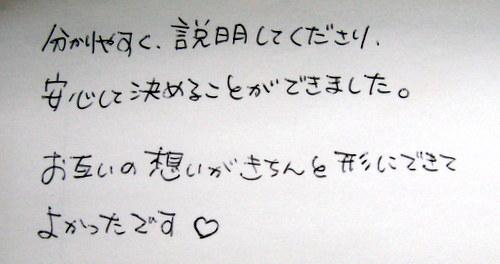 分かりやすく、説明してくださり、
安心して決めることができました。
お互いの想いがきちんと形にできて
よかったです♡